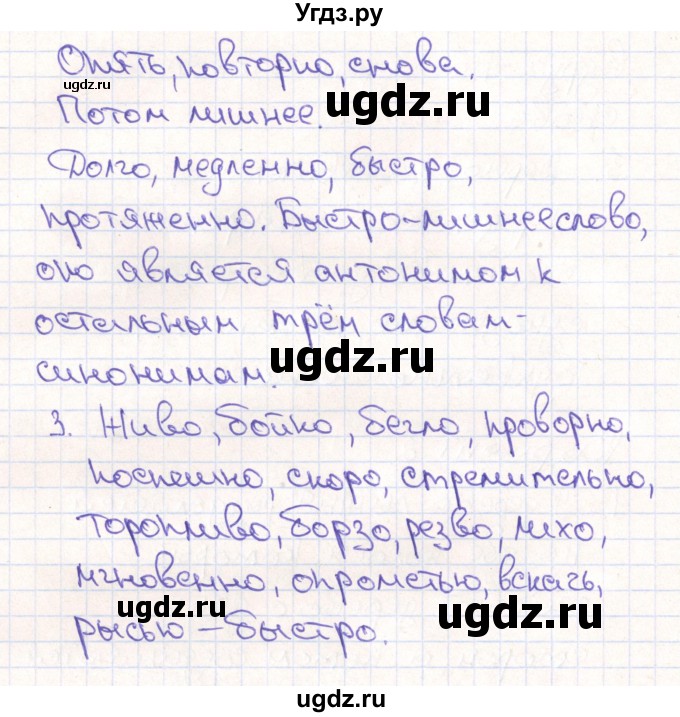 Угдз.ру
Опять, повторно, снова.
ugdz.ru
Потом лишнее.
ugdz.ru
Долго, медленно, быстро,
протяженно. Быстро-лишнее слово,
оно является антонимом к
остальным трём словам-
ugdz.ru
синонимам.
3. Живо, бойко, бегло, проворно,
поспешно, скоро, стремительно,
торопливо, борзо, резво, лихо,
ugdz.ru
мгновенно, опрометью, вскачь,
ugdz.ru
рысью – быстро.
ugdz.ru
ugdz.ru